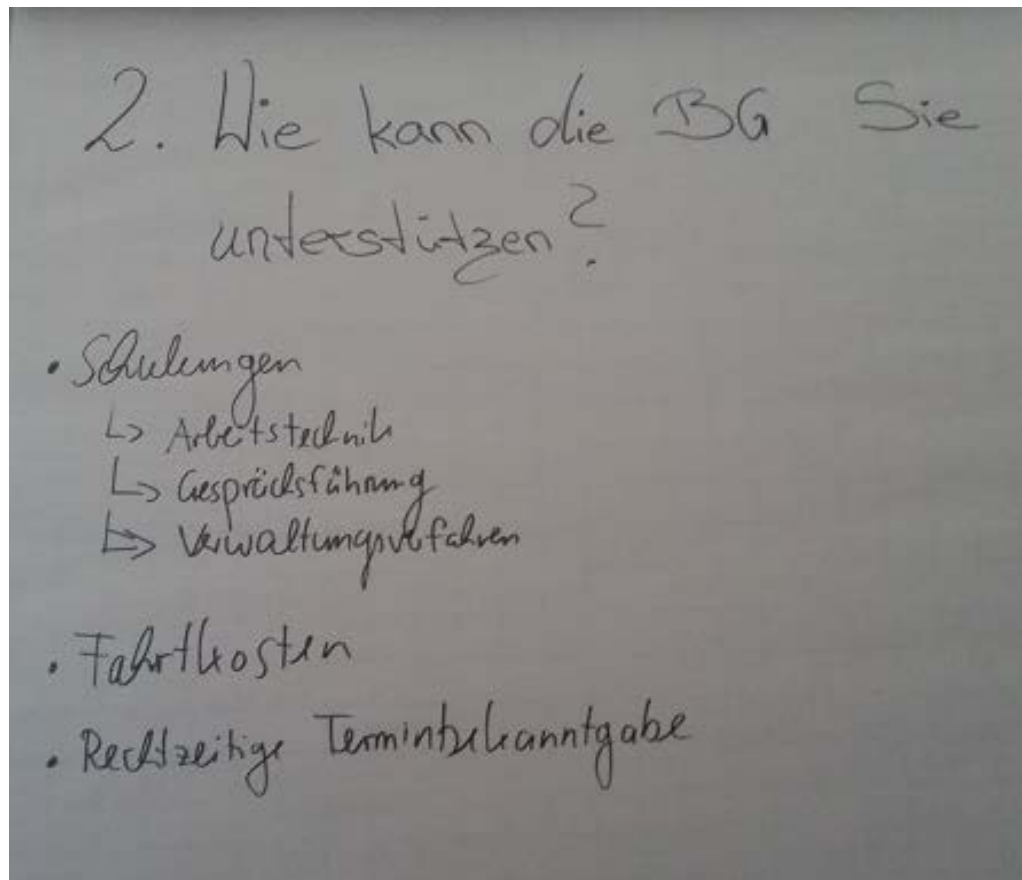 2. Wie kann die BG Sie
unterstützen?
• Schulungen
↳ Arbeitstechnik
↳ Gesprächsführung
↳ Verwaltungsverfahren
• Fahrtkosten
• Rechtzeitige Terminbekanntgabe